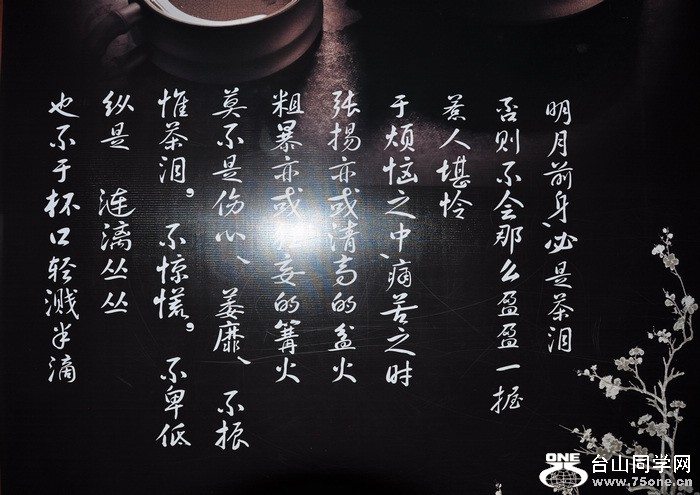 明月前身,必是茶泪
否则不会那么盈盈一握
惹人堪怜
于烦恼之中,痛苦之时
张扬亦或清高的盆火
粗暴亦或妄的篝火
莫不是伤心、萎靡、不振
惟茶泪。不惊慌。不卑低
纵是 涟漓丛丛
也不于杯口轻溅半滴
ONE
台山同学网
www.75one.cn